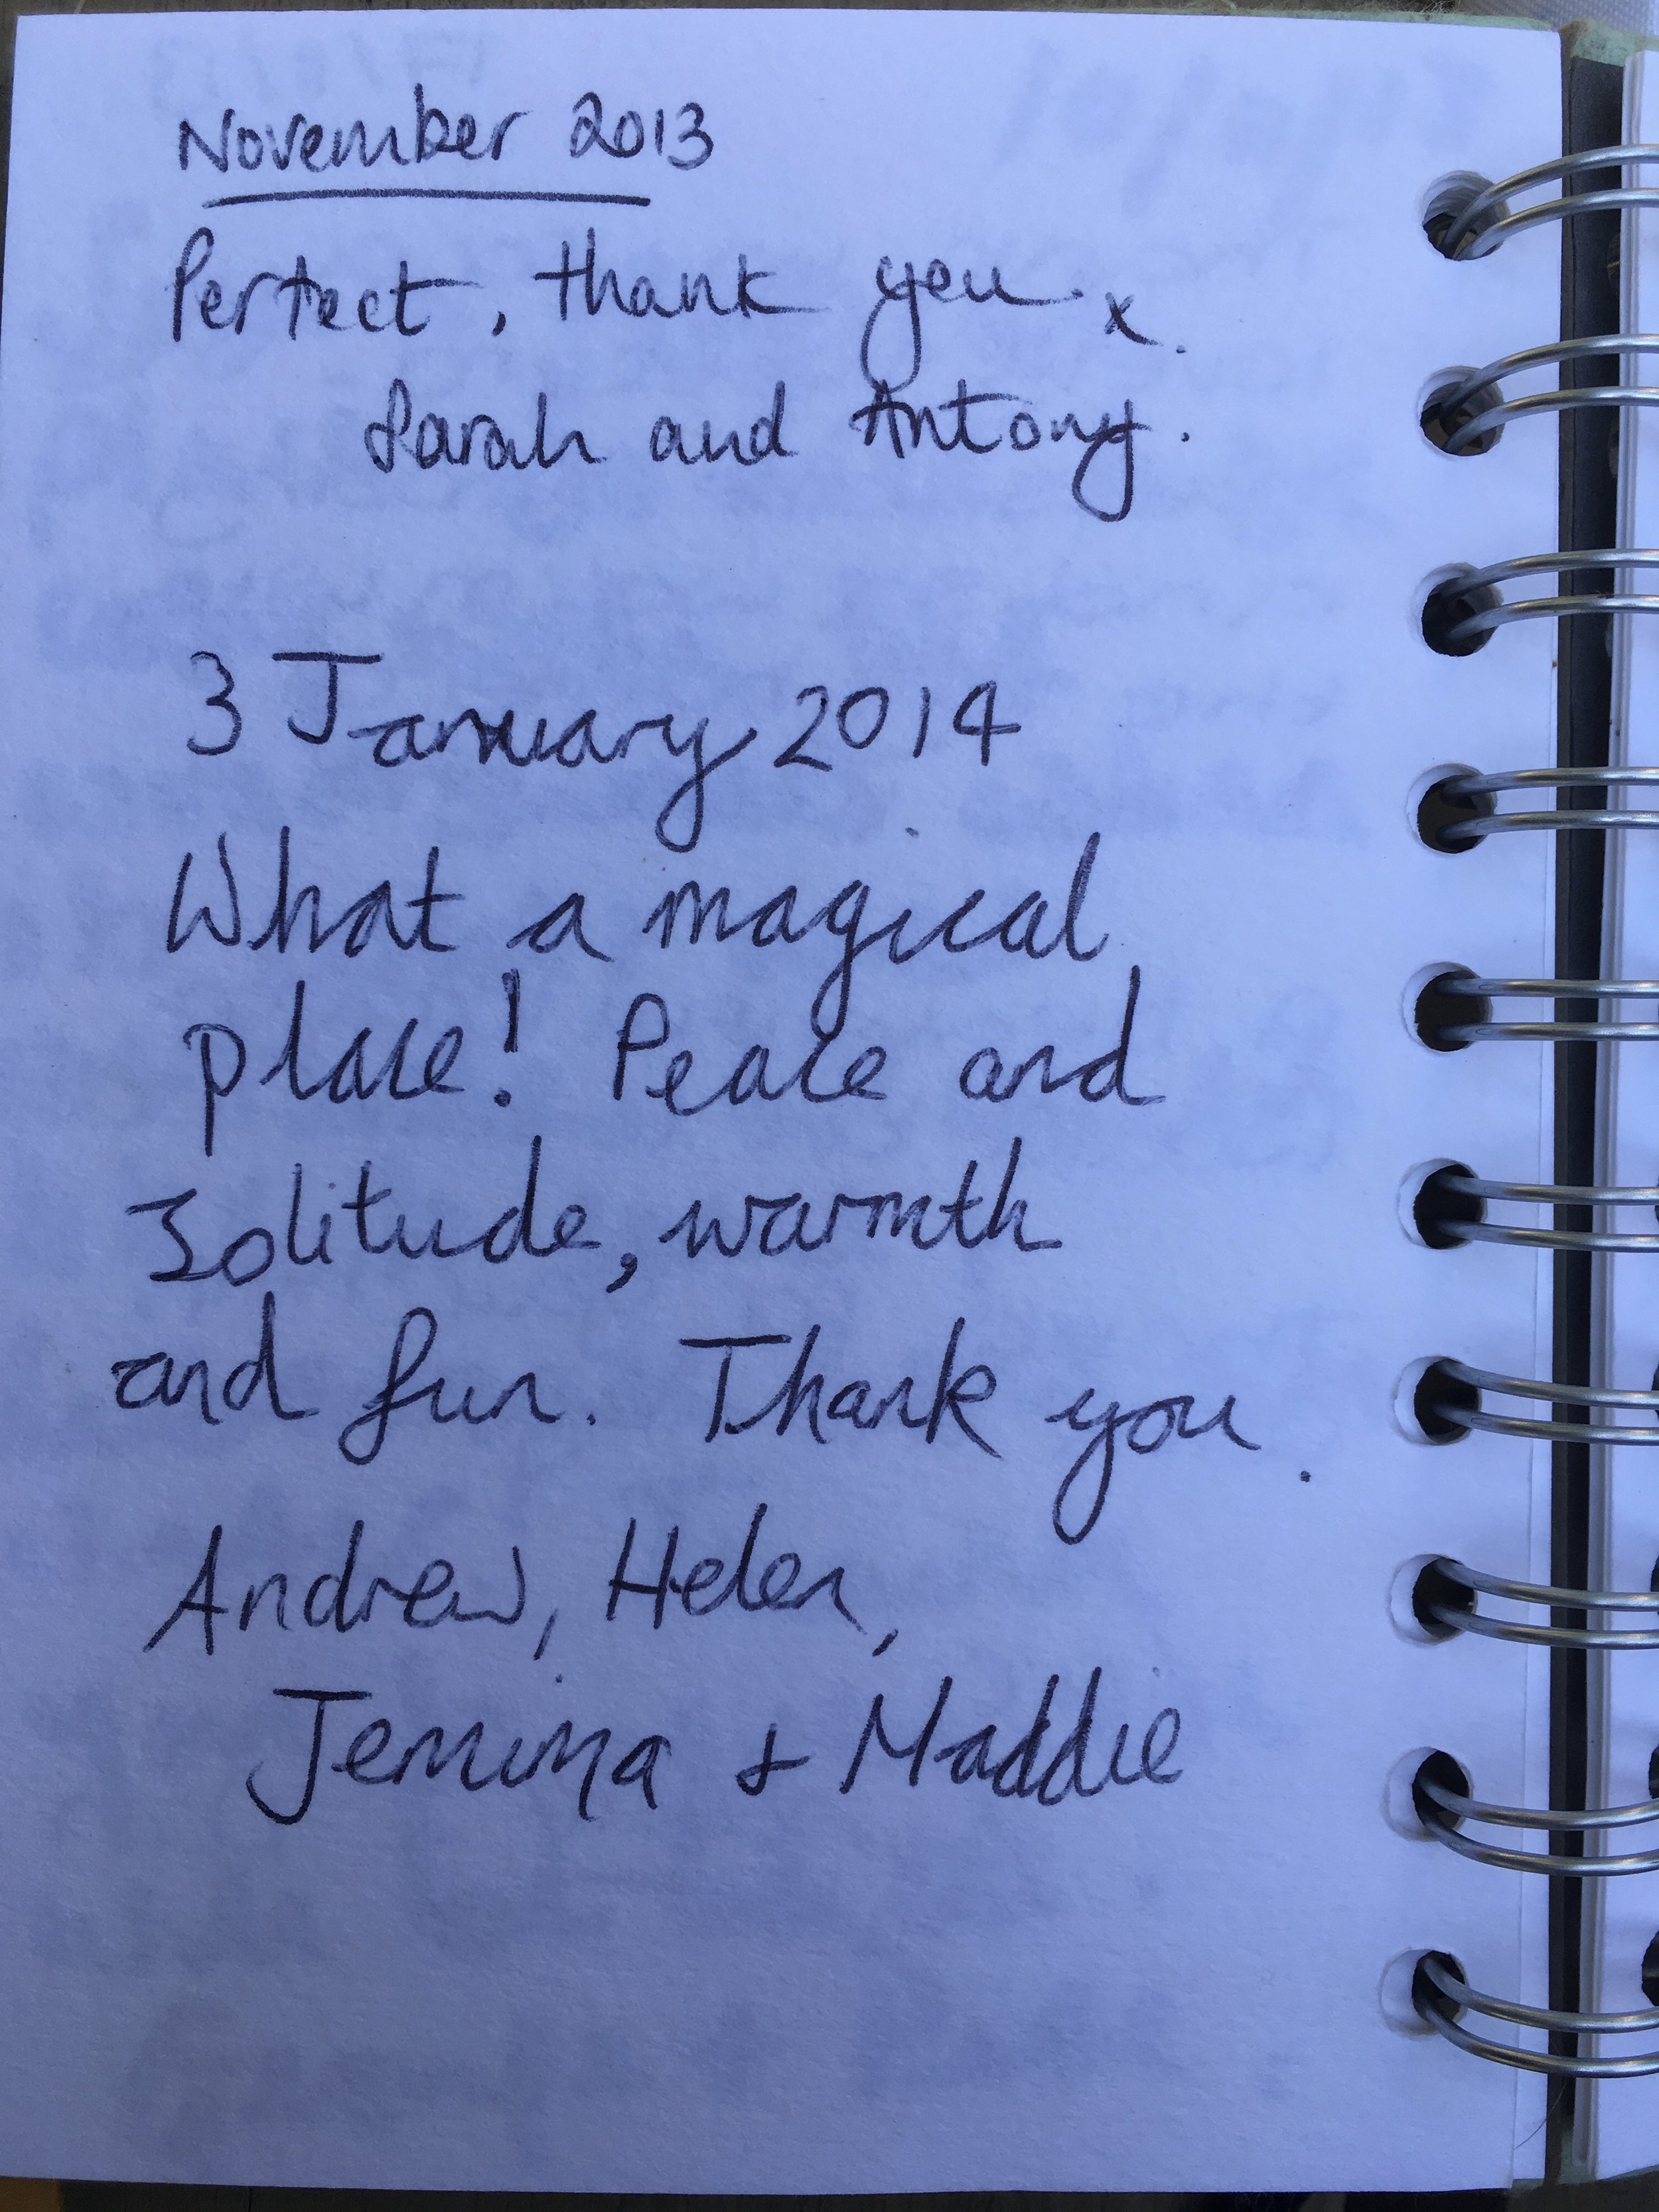 November 2013
Perfect, thank you x.
Sarah and Antony.
3 January 2014
What a magical
place! Peace and
Solitude, warmth
and fun. Thank you.
Andrew, Helen,
Jemima & Maddie